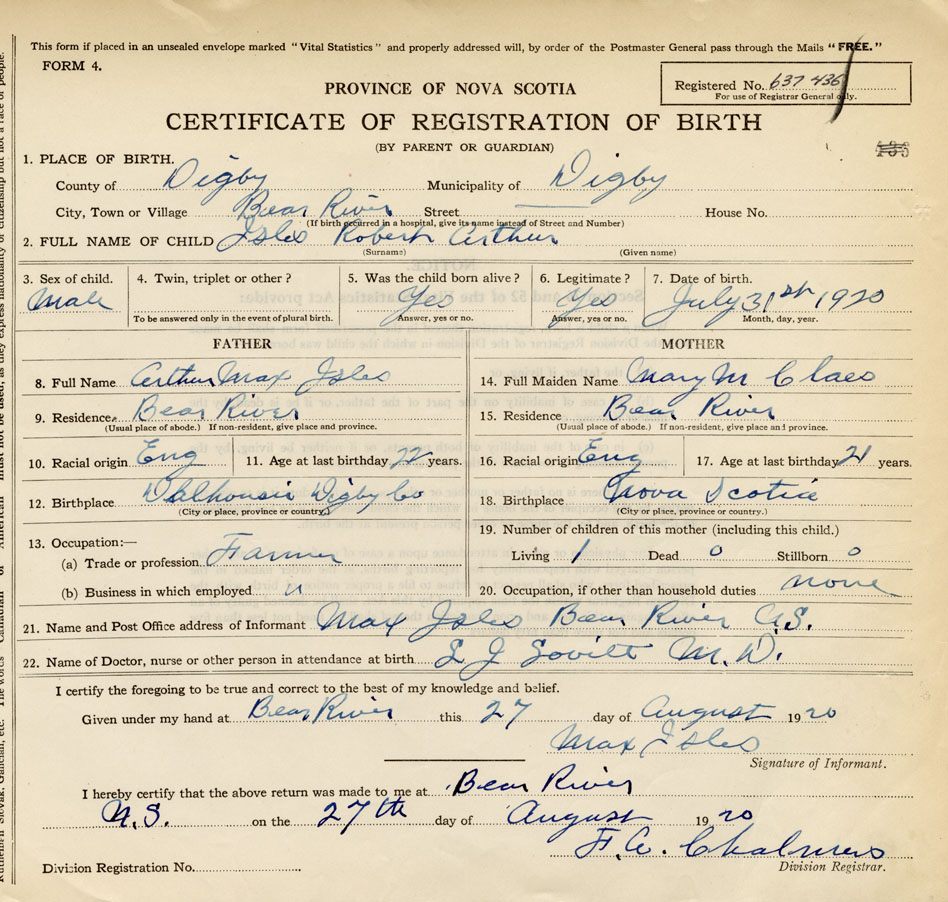 This form if placed in an unsealed envelope marked "Vital Statistics" and properly addressed will, by order of the Postmaster General pass through the Mails "FREE."
FORM 4.
Registered No. 637 436
For use of Registrar General only.
PROVINCE OF NOVA SCOTIA
CERTIFICATE OF REGISTRATION OF BIRTH
(BY PARENT OR GUARDIAN)
1. PLACE OF BIRTH.
County of Digby Municipality of Digby
City, Town or Village Bear River Street House No.
(If birth occurred in a hospital, give its name instead of Street and Number)
2. FULL NAME OF CHILD Isles Robert Arthur
(Surname) (Given name)
3. Sex of child. 4. Twin, triplet or other? 5. Was the child born alive? 6. Legitimate? 7. Date of birth.
Male Yes Yes July 31st 1920
To be answered only in the event of plural birth. Answer, yes or no. Answer, yes or no. Month, day, year.
FATHER MOTHER
8. Full Name Arthur Max Isles 14. Full Maiden Name Mary M
9. Residence. Bear River 15. Residence Bear River
(Usual place of abode.) If non-resident, give place and province. (Usual place of abode.) If non-resident, give place and province.
10. Racial origin Eng 11. Age at last birthday 22 years. 16. Racial origin Eng 17. Age at last birthday 21 years.
12. Birthplace Dalhousie Digby Co 18. Birthplace Nova Scotia
(City or place, province or country.) (City or place, province or country.)
13. Occupation:— 19. Number of children of this mother (including this child.)
(a) Trade or profession Farmer Living 1 Dead 0 Stillborn 0
(b) Business in which employed " 20. Occupation, if other than household duties none
21. Name and Post Office address of Informant Max Isles Bear River N.S.
22. Name of Doctor, nurse or other person in attendance at birth L J Lovitt M.D.
I certify the foregoing to be true and correct to the best of my knowledge and belief.
Given under my hand at Bear River this 27 day of August 1920
Max Isles
Signature of Informant.
I hereby certify that the above return was made to me at Bear River
N.S. on the 27th day of August 1920
F. A. Chalmers
Division Registration No. Division Registrar.